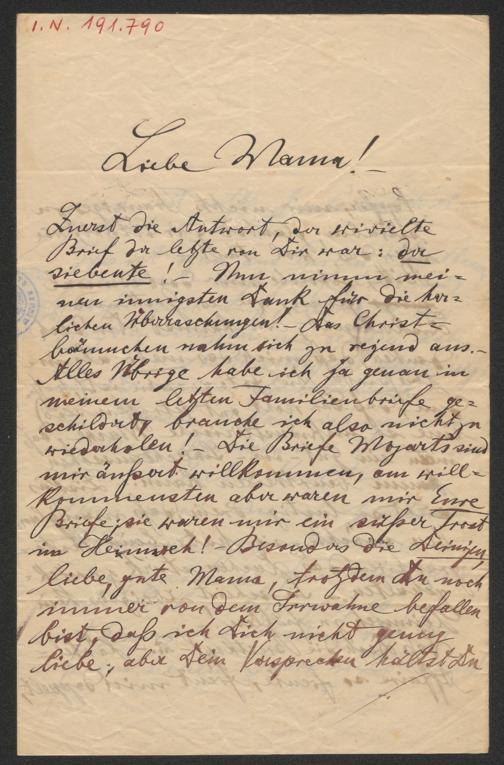 I.N. 191.790
Liebe Mama! –
Zuerst die Antwort, der wievielte
Brief der letzte von Dir war: der
siebente! – Nun nimm mei=
nen innigsten Dank für die herr=
lichen Überraschungen! – Das Christ=
bäumchen nahm sich zu reizend aus. –
Alles Übrige habe ich ja genau in
meinem letzten Familienbriefe ge=
schildert, brauche ich also nicht zu
wiederholen! – Die Briefe Mozarts sind
mir äußerst willkommen, am will=
kommensten aber waren mir Eure
Briefe; sie waren mir ein süßer Trost
im Heimweh! – Besonders die Deinigen,
liebe, gute Mama, trotzdem Du noch
immer von dem Irrwahne befallen
bist, daß ich Dich nicht genug
liebe; aber Dein Versprechen hältst Du